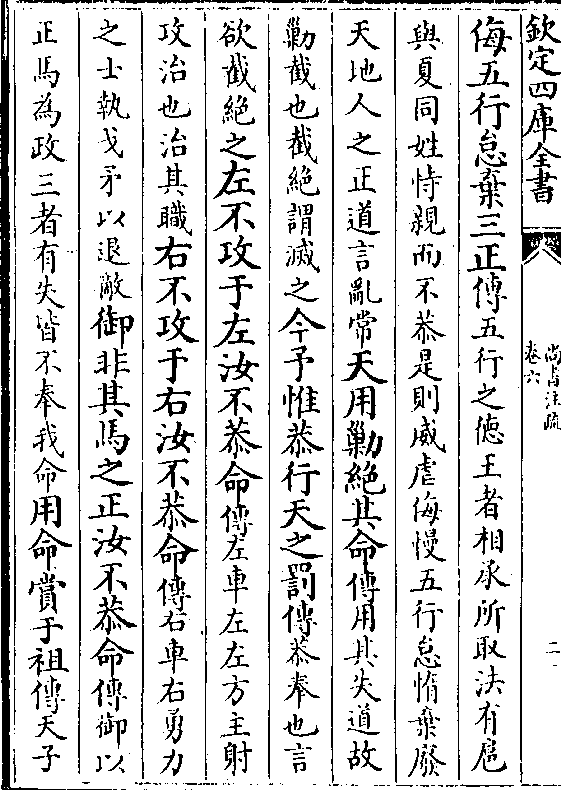 欽定四庫全書
尚書注疏
卷六
二
侮五行怠棄三正傳五行之徳王者相承所取法有扈
與夏同姓恃親而不恭是則威虐侮慢五行怠惰棄廢
天地人之正道言亂常天用勦絶其命傳用其失道故
勦截也截絶謂滅之今予惟恭行天之罰傳恭奉也言
欲截絶之左不攻于左汝不恭命傳左車左左方主射
攻治也治其職右不攻于右汝不恭命傳右車右勇力
之士執戈矛以退敵御非其馬之正汝不恭命傳御以
正馬為政三者有失皆不奉我命用命賞于祖傳天子